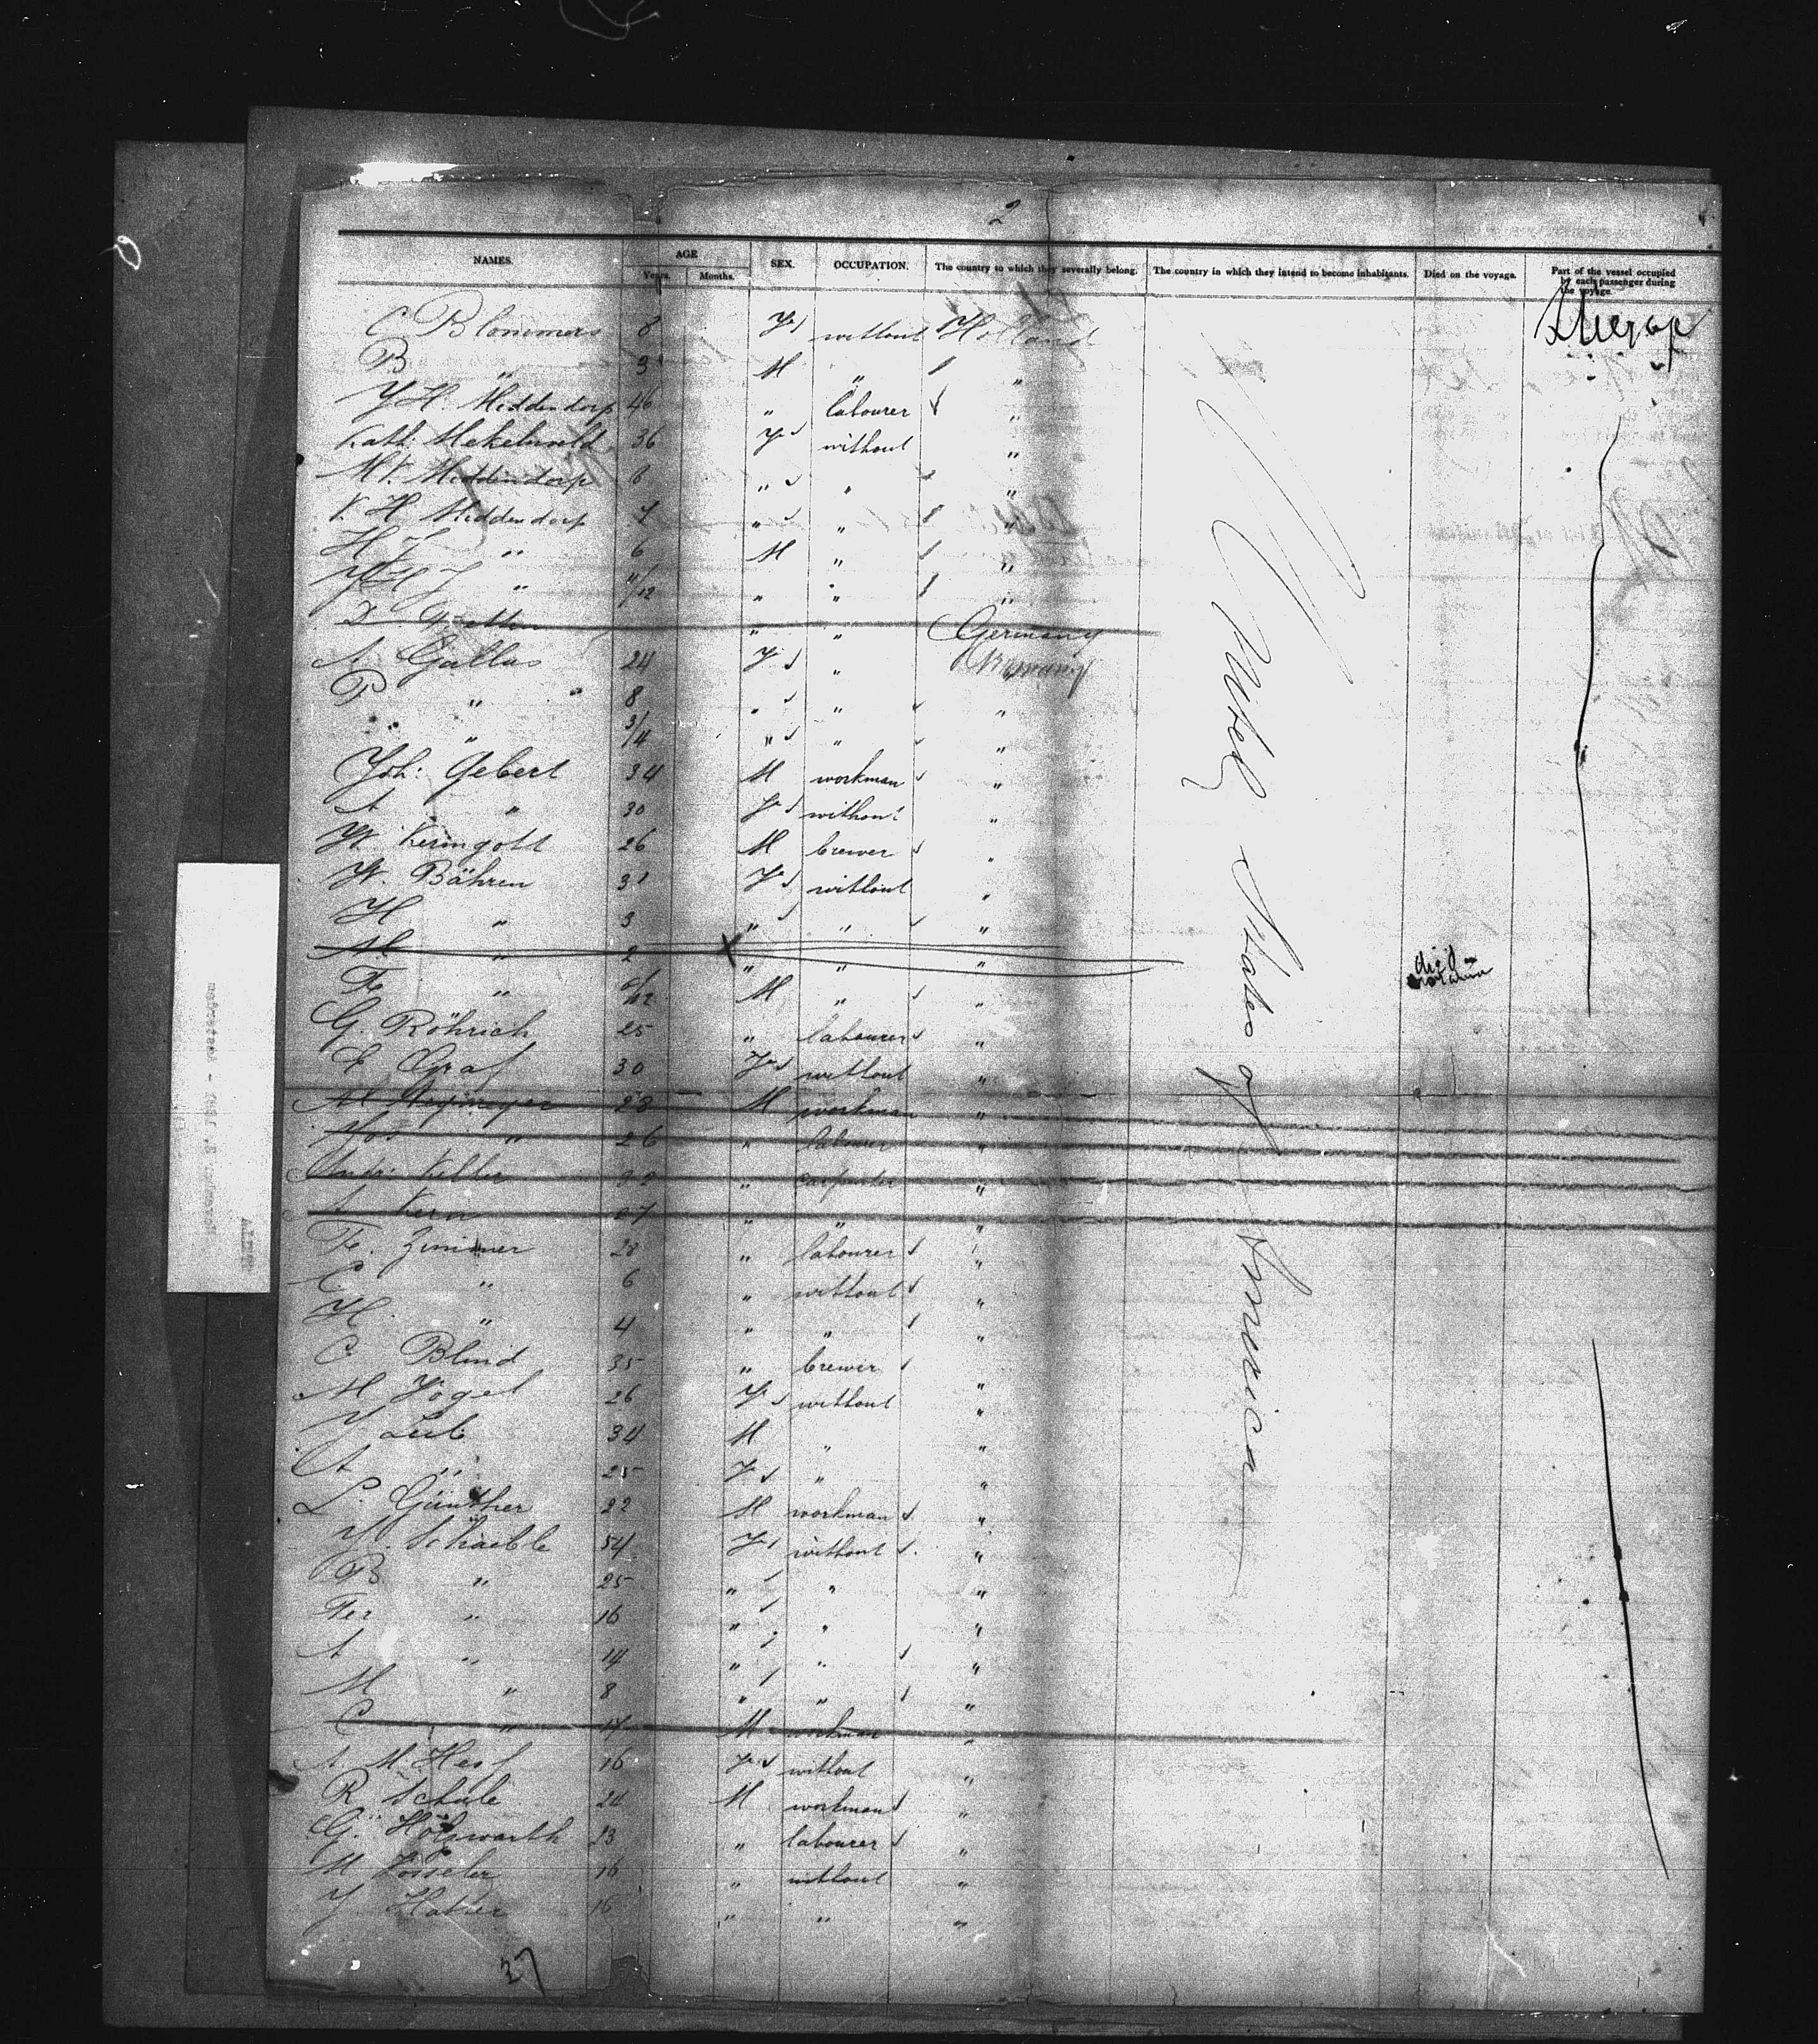 2
NAMES. AGE SEX. OCCUPATION. The country to which they severally belong. The country in which they intend to become inhabitants. Died on the voyage. Part of the vessel occupied by each passenger during the voyage.
Years. Months.
C Blommers 8 F without Holland
B " 3 M " "
Y H. Middendorp 46 " labourer "
Kath. Mekelnveld 36 F without "
M. Middendorp 8 " " "
V. H Middendorp 7 " " "
H J " 6 M " "
Y H J " 11/12 " " "
D " " Germany
A Gallas 24 F " Germany
P " 8 " " "
" 3/4 " " "
Joh: Gebert 34 M workman "
A " 30 F without "
W. Kerngott 26 M brewer "
W. Bähren 31 F without "
H " 3 " " "
M " 2 " " "
Fr " 6/12 M " "
G. Röhrich 25 " labourer "
E Graf 30 F without "
28 M workman "
Jos " 26 " labourer "
Andr: Keller " carpenter "
A Kern 27 " " "
Fr. Zimmer 28 " labourer "
C. " 6 " without "
H. " 4 " " "
C. Blind 35 " brewer "
M Vogel 26 F without "
J Leib 34 M " "
A " 25 F " "
L. Günther 22 M workman "
M. Schaible 54 F without "
B " 25 " " "
Fer " 16 " " "
A " 14 " " "
M " 8 " " "
C " 17 M workman "
A M Hess 16 F without "
R Schüle 24 M workman "
G. Holzwarth 23 " labourer "
M Vosseler 16 " without "
J 16 " " "
United States of America
37